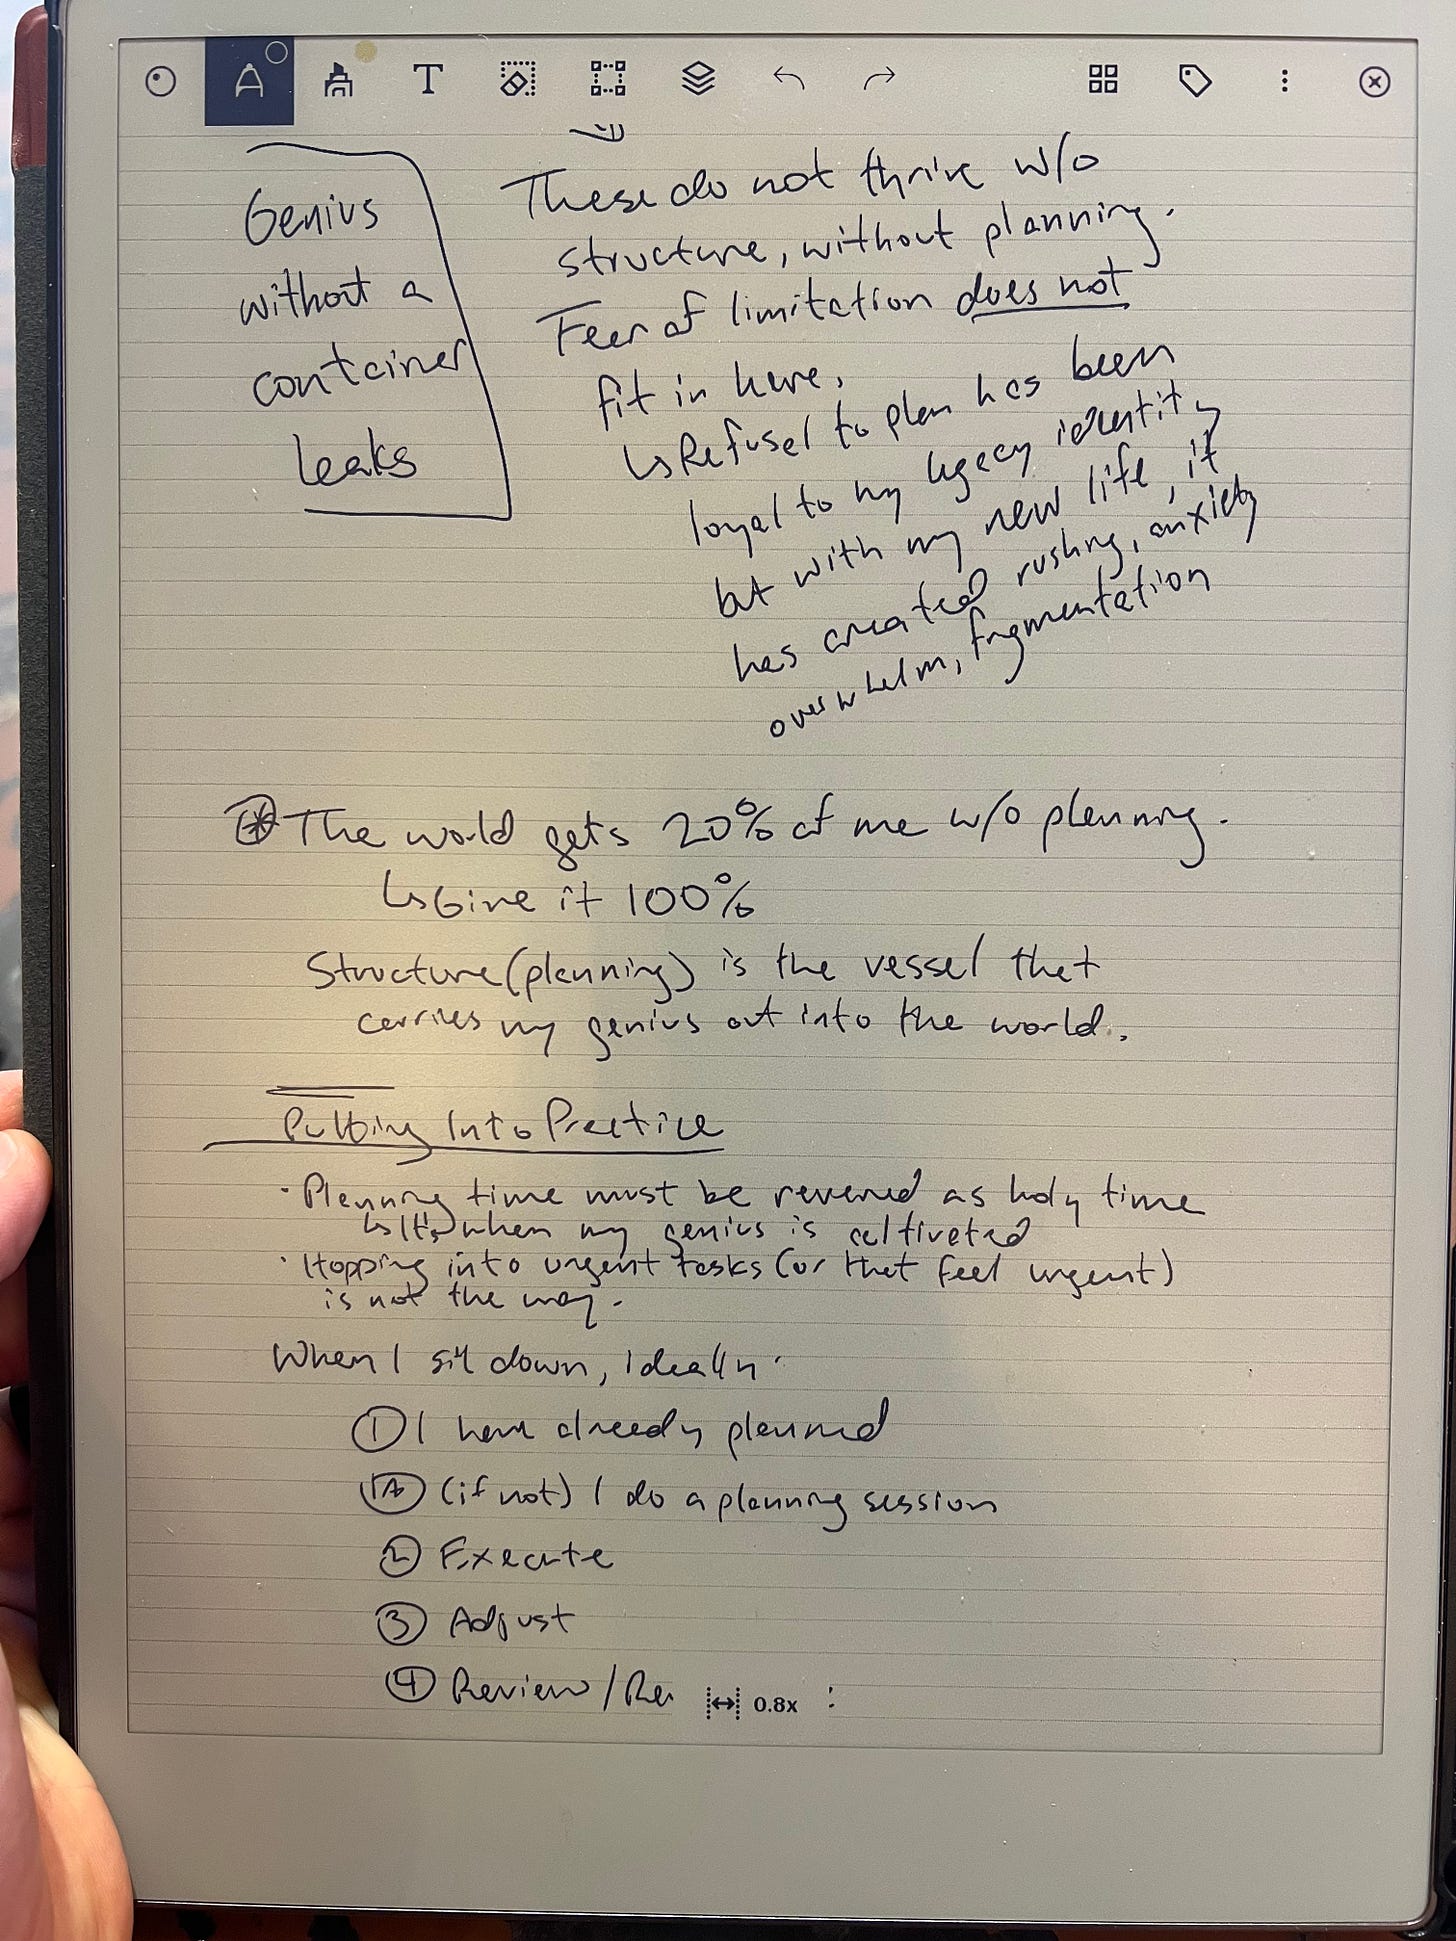 T
Genius
without a
container
leaks
These do not thrive w/o
structure, without planning.
Fear of limitation does not
fit in here.
↳ Refusal to plan has been
loyal to my legacy identity
but with my new life, it
has created rushing, anxiety
overwhelm, fragmentation
The world gets 20% of me w/o planning.
↳ Give it 100%
Structure (planning) is the vessel that
carries my genius out into the world.
Putting Into Practice
· Planning time must be revered as holy time
↳ It's when my genius is cultivated
· Hopping into urgent tasks (or that feel urgent)
is not the way.
When I sit down, ideally:
① I have already planned
(if not) I do a planning session
② Execute
③ Adjust
④ Review/Re
0.8x